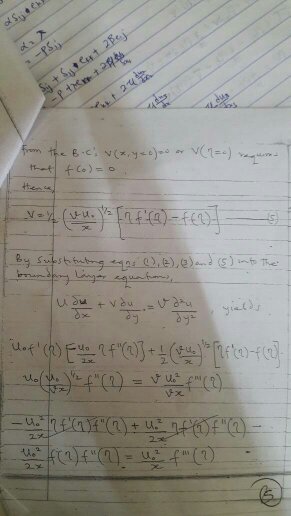 αSij
- PSij
Sij + Sij ekk + 2βeij
from the B.C's V(x, y=0)=0 or V(η=0) requires
that f(0) = 0.
hence,
V = 1/2 (νU₀/x)^1/2 [η f'(η) - f(η)] (5)
By substituting eqns (1), (2), (3) and (5) into the
boundary layer equations,
U ∂u/∂x + V ∂u/∂y = ν ∂²u/∂y², yields
U₀ f'(η) [-U₀/2x η f''(η)] + 1/2 (νU₀/x)^1/2 [η f'(η) - f(η)].
U₀ (U₀/νx)^1/2 f''(η) = ν U₀²/νx f'''(η)
- U₀²/2x η f'(η) f''(η) + U₀²/2x η f'(η) f''(η) -
U₀²/2x f(η) f''(η) = U₀²/x f'''(η)
5